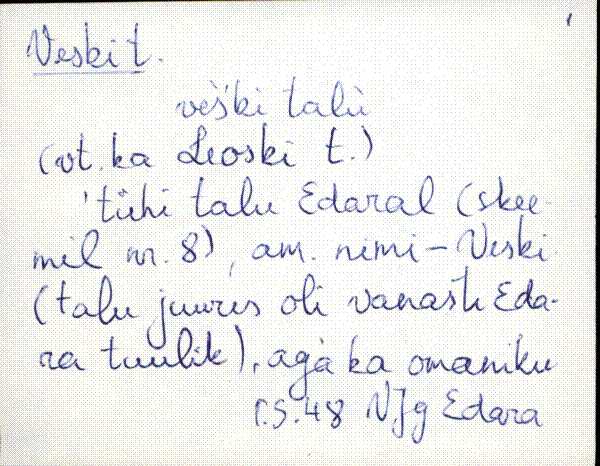 Veski t.
vèški talù
(vt. ka Leoski t.)
'tühi talu Edaral (skee-
mil nr. 8), am. nimi – Veski
(talu juures oli vanasti Eda-
ra tuulik), agà ka omaniku
r.S.48 NJg Edara